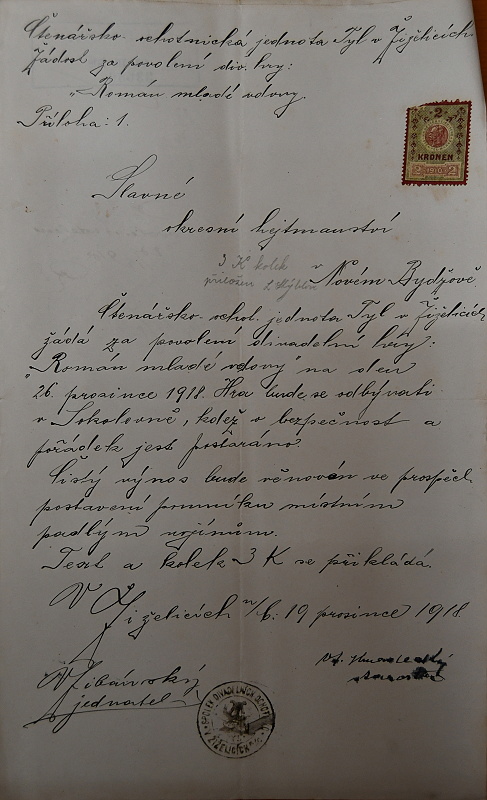 Čtenářsko-ochotnická jednota Tyl v Žiželicích.
Žádost za povolení div. hry:
„Román mladé vdovy.
Příloha: 1.
2
KRONEN
2 1910 2
Slavné
okresní hejtmanství
3 K kolek
přiložen
v Novém Bydžově.
Čtenářsko-ochot. jednota Tyl v Žiželicích
žádá za povolení divadelní hry:
„Román mladé vdovy" na den
26. prosince 1918. Hra bude se odbývati
v Sokolovně, kdež o bezpečnost a
pořádek jest postaráno.
Čistý výnos bude věnován ve prospěch
postavení pomníku místním
padlým vojínům.
Text a kolek 3 K se přikládá.
V Žiželicích n/C. 19 prosince 1918.
starosta
jednatel
SPOLEK DIVADELNÍCH OCHOT